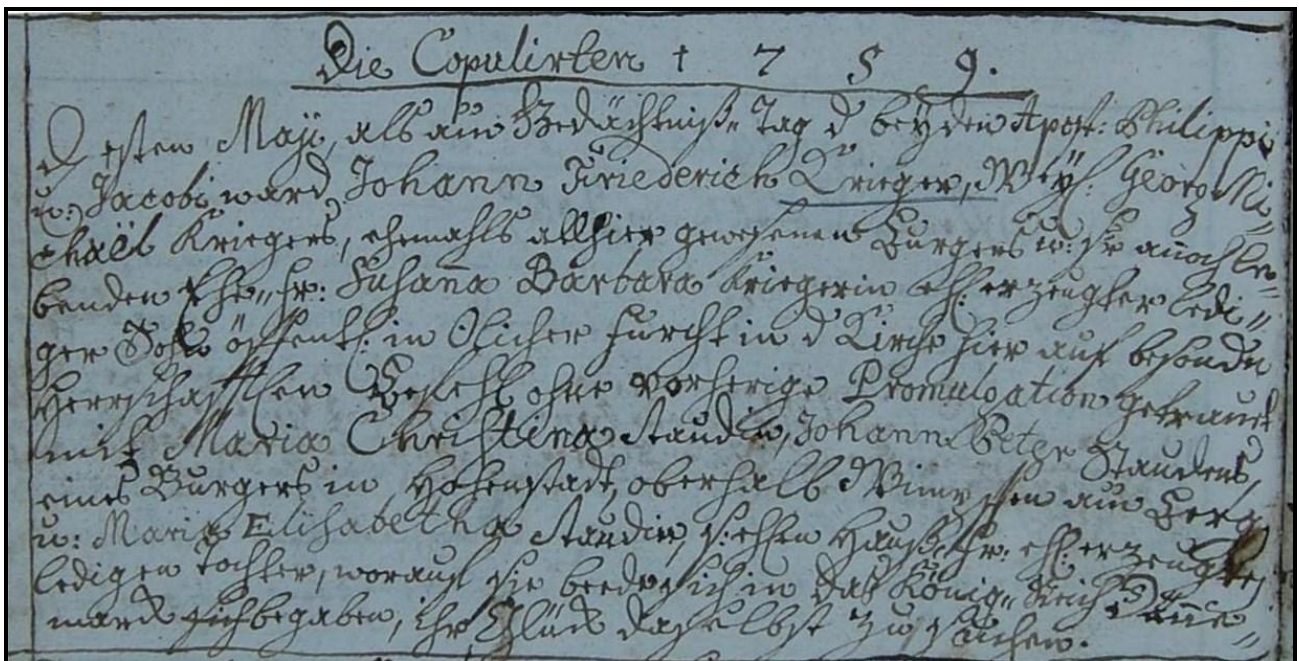 Die Copulirten 1759.
d. 1sten Maji, als am Gedächtniß-Tag d beyden Apost: Philippi
u: Jacobi, ward Johann Friederich Krieger, Weyl. Georg Mi„
chäel Kriegers, ehemahls allhier gewesenen Burgers u: der annoch le„
benden Ehe„Fr: Susanna Barbara Kriegerin ehl. erzeugter ledi„
ger Sohn öffentl. in Kirche hier auf besondn
Herrschafftlen Befehl ohne vorherige Promulgation getraut
mit Maria Christina Staudin, Johann Peter Staudens,
eines Burgers in Hohenstadt, oberhalb Wimpffen am Berg
u: Maria Elisabetha Staudin, s: ehlen Hauß Fr: ehl. erzeugter
ledigen Tochter, worauf sie beede sich in das König„Reich Däne„
mark begaben, ihr Glück daselbst zu suchen.